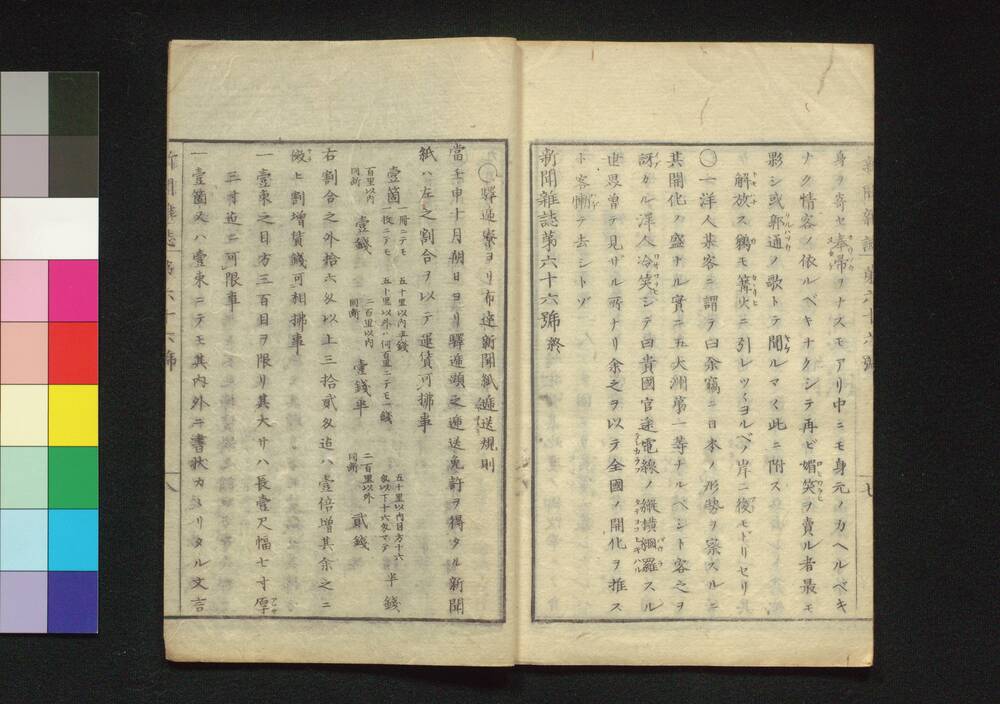 身ヲ寄セ奉帚ヲナスモアリ中ニモ身元ノカヘルベキ
ナク情客ノ依ルベキナクシテ再ビ媚笑ヲ賣ル者最モ
影シ或新通ノ歌トテ聞ルマヽ此ニ附ス
解放ス鵜モ篝火ニ引レツヽヨルベノ岸ニ後モドリセリ
〇一洋人某客ニ謂テ曰余竊ニ日本ノ形勢ヲ察スルニ
其開化ノ盛ナル實ニ五大洲第一等ナルベシト客之ヲ
訝カル洋人冷笑シテ曰貴國官途電線ノ縱横綱羅スル
世界曽テ見ザル所ナリ余之ヲ以テ全國ノ開化ヲ推ス
ト客慚テ去シトゾ
新聞雜誌第六十六號終
七
〇驛逓寮ヨリ布達新聞紙逓送規則
當壬申十月朔日ヨリ驛逓頭之逓送免許ヲ得タル新聞
紙ハ左之割合ヲ以テ運賃可拂事
壹箇
一冊ニテモ
一枚ニテモ
五十里以内五錢
五十里以外ハ何百里ニテモ一錢
五十里以内目方十六
匁以下十六匁マテ
半錢
百里以内
同断
壹錢
二百里以内
同断
壹錢半
二百里以外
同断
貳錢
右割合之外拾六匁以上三拾貳匁迠ハ壹倍増其余之ニ
傚ヒ割増賃錢可相拂事
一壹束之目方三百目ヲ限リ其大サハ長壹尺幅七寸厚
三寸迠ニ可限事
一壹箇又ハ壹束ニテモ其内外ニ書状カヨリタル文言
新聞雜誌 第六十六號
八